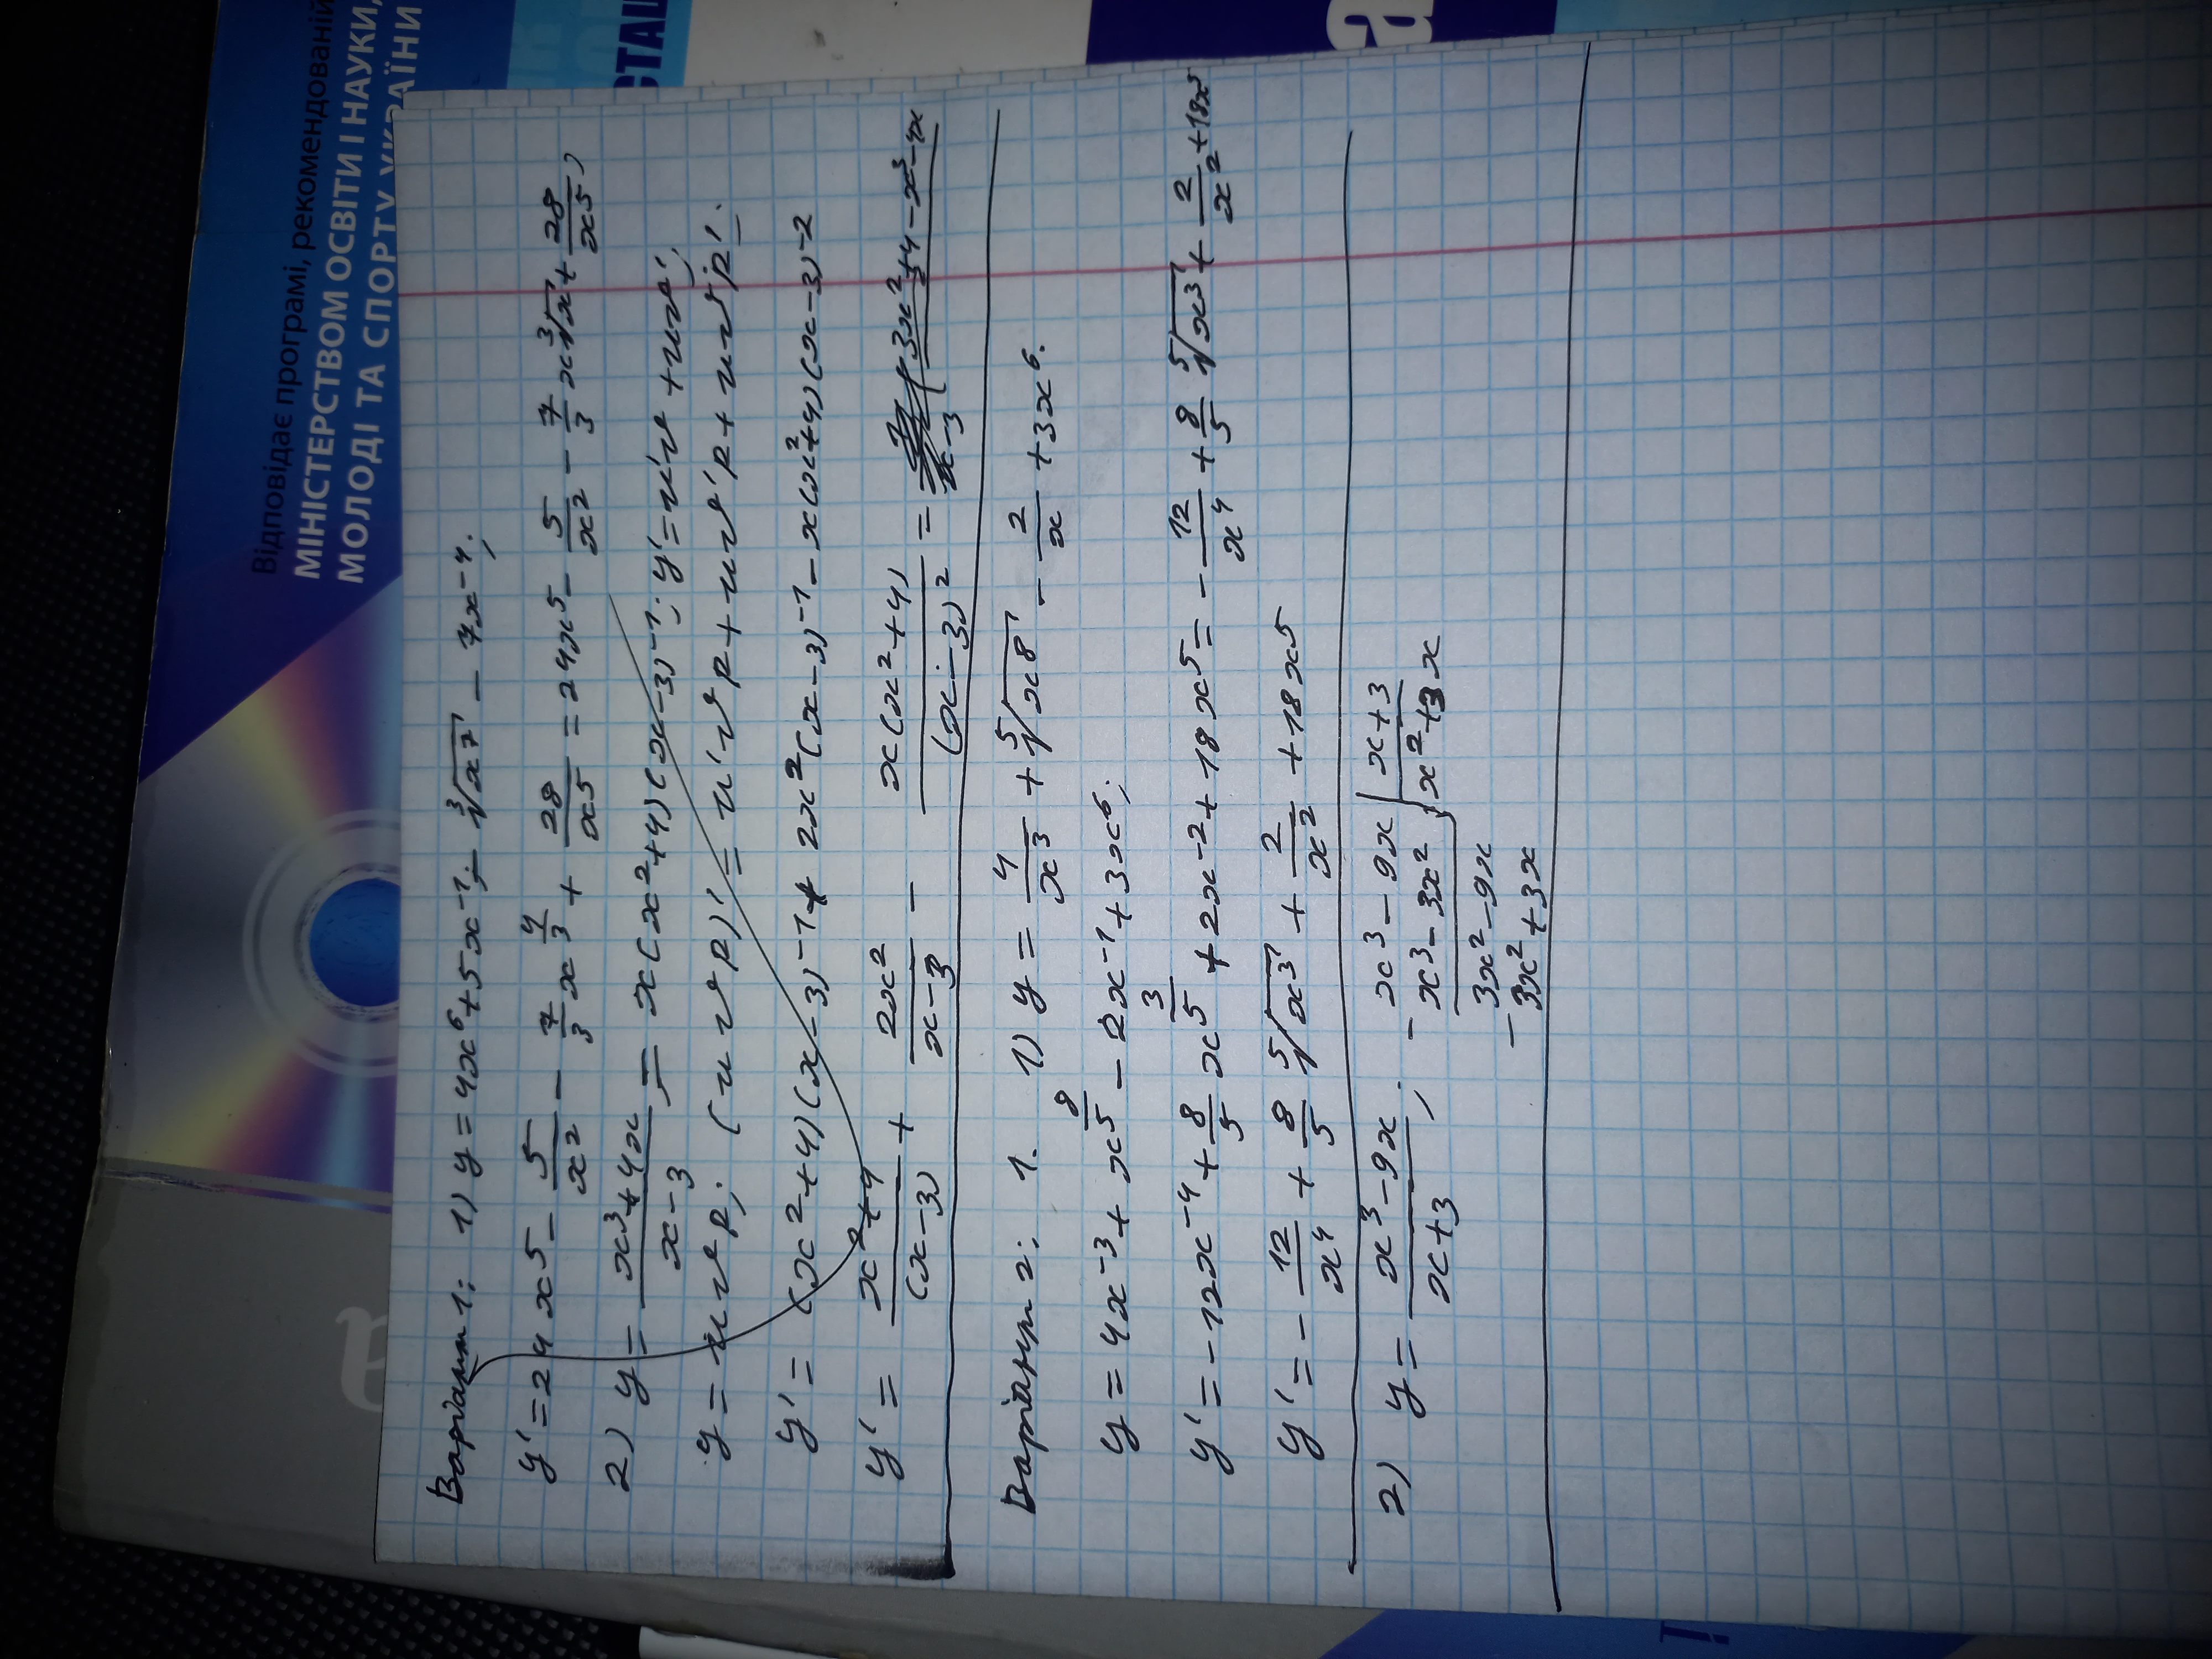 Відповідає програмі, рекомендованій
МІНІСТЕРСТВОМ ОСВІТИ І НАУКИ,
МОЛОДІ ТА СПОРТУ УКРАЇНИ
Варіант 1: 1) y = 4x⁶ + 5x⁻¹ - ∛(x⁷) - 7x⁻⁴;
y' = 24x⁵ - 5/x² - 7/3 x^(4/3) + 28/x⁵ = 24x⁵ - 5/x² - 7/3 x∛x + 28/x⁵;
2) y = (x³+4x)/(x-3) = x(x²+4)(x-3)⁻¹; y' = u'v + uv';
y = uvp; (uvp)' = u'vp + uv'p + uvp'.
y' = (x²+4)(x-3)⁻¹ + 2x²(x-3)⁻¹ - x(x²+4)(x-3)⁻²
y' = (x²+4)/(x-3) + 2x²/(x-3) - x(x²+4)/(x-3)² =
Варіант 2: 1. 1) y = 4/x³ + ⁵√(x⁸) - 2/x + 3x⁶.
y = 4x⁻³ + x^(8/5) - 2x⁻¹ + 3x⁶;
y' = -12x⁻⁴ + 8/5 x^(3/5) + 2x⁻² + 18x⁵ = -12/x⁴ + 8/5 ⁵√(x³) + 2/x² + 18x⁵
y' = -12/x⁴ + 8/5 ⁵√(x³) + 2/x² + 18x⁵
2) y = (x³-9x)/(x+3); - x³ - 9x | x+3
x³ - 3x² | x² + 3x
- 3x² - 9x
3x² + 3x